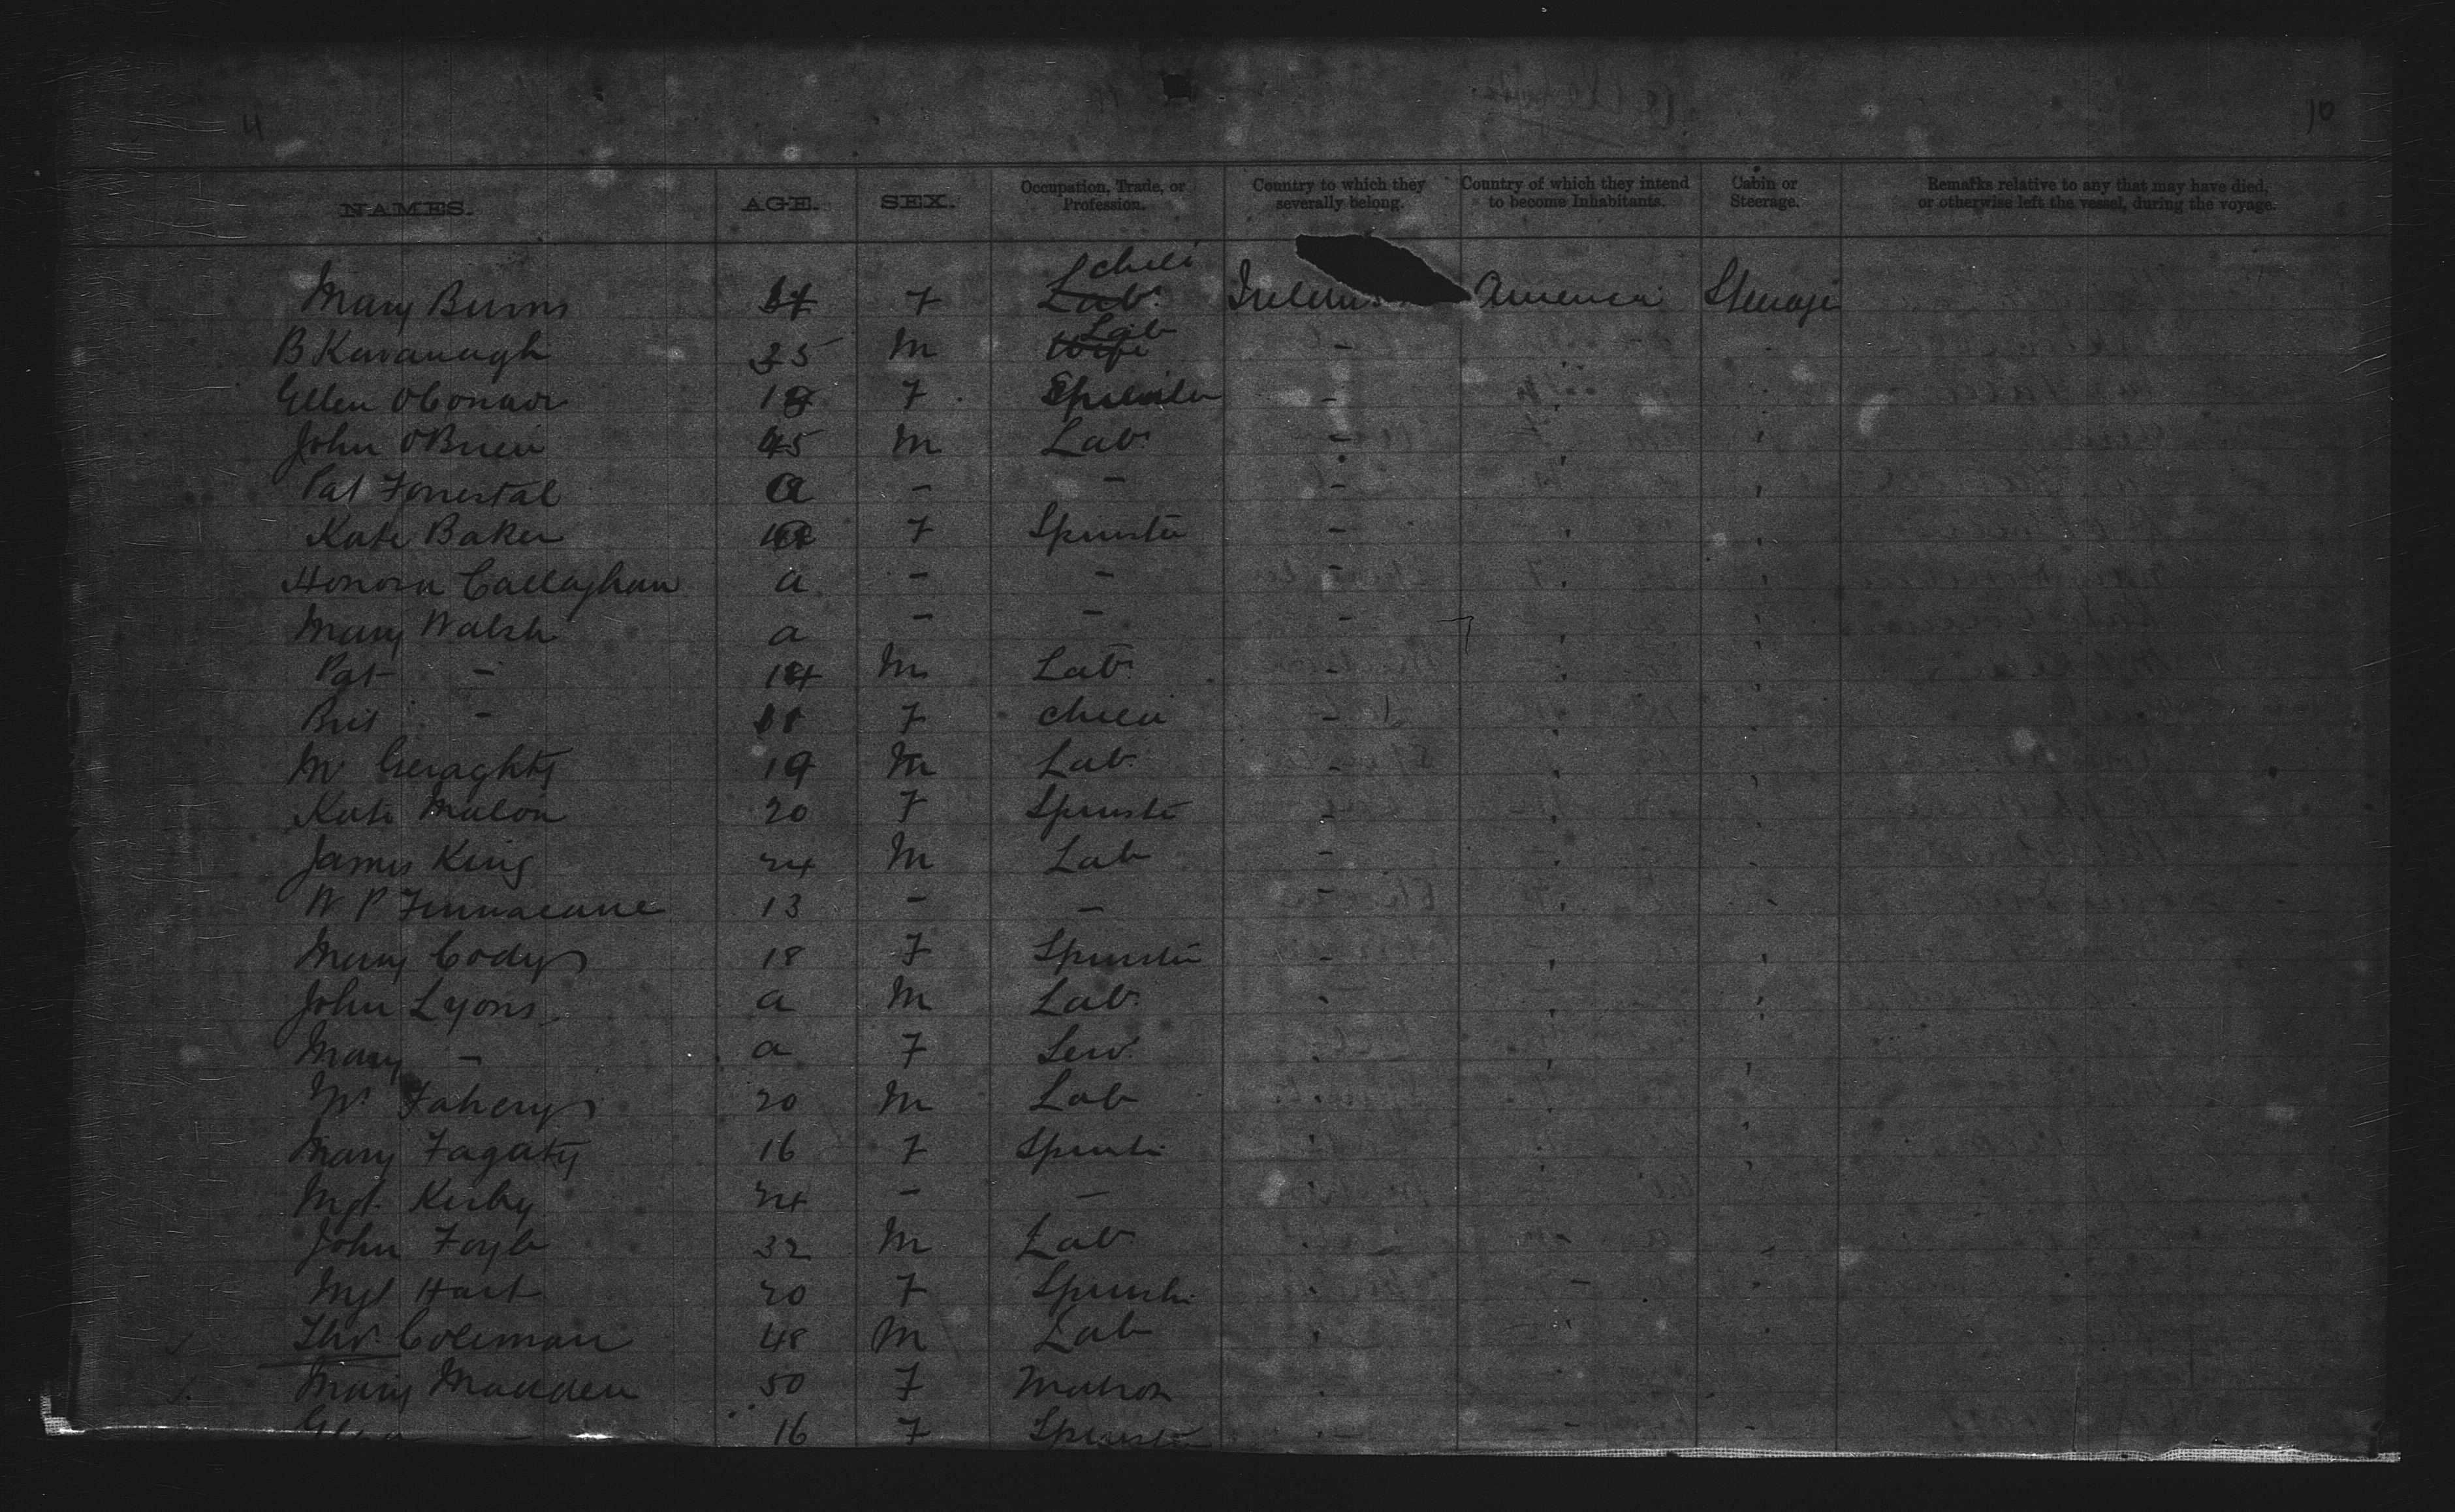 4 10
NAMES. AGE. SEX. Occupation, Trade, or Profession. Country to which they severally belong. Country of which they intend to become Inhabitants. Cabin or Steerage. Remarks relative to any that may have died, or otherwise left the vessel, during the voyage.
Mary Burns F Lab. child America Steerage
B Kavanagh 25 M Wife Lab - "
Ellen OConnor 18 F Spinster - " "
John OBrien 45 M Lab. - " "
Pat Forrestal a - - - " "
Kate Baker F Spinster - " "
Honora Callaghan a - - - " "
Mary Walsh a - - - " "
Pat - 14 M Lab. - " "
Brid - 11 F child - " "
M Geraghty 19 M Lab. - " "
Kate Malon 20 F Spinster - " "
James King 24 M Lab - " "
W P Finnacane 13 - - - " "
Mary Cody 18 F Spinster - " "
John Lyons a M Lab. " " "
Mary - a F Serv. " " "
Faherty 20 M Lab " " "
Mary Fagaty 16 F Spinster " " "
Mgt. Kerby 24 - -
John Foyle 32 M Lab " - -
Mgt Hart 20 F Spinster " - "
Thos. Coleman 48 M Lab " - "
Mary Madden 50 F Matron " - "
16 F Spinster - - -